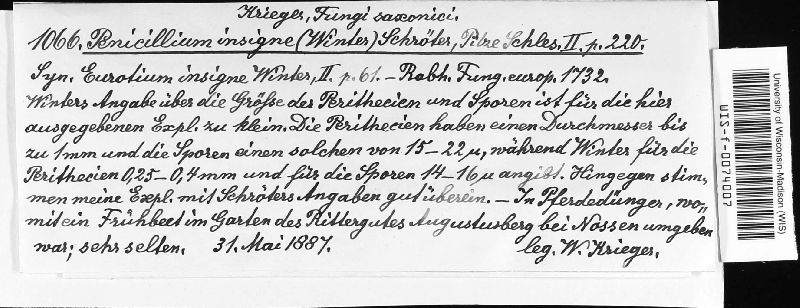 Krieger, Fungi saxonici.
1066. Penicillium insigne (Winter) Schröter, Pilze Schles. II. p. 220.
Syn. Eurotium insigne Winter, II. p. 61. – Rabh. Fung. europ. 1732.
Winters Angabe über die Größe der Perithecien und Sporen ist für die hier
ausgegebenen Expl. zu klein. Die Perithecien haben einen Durchmesser bis
zu 1 mm und die Sporen einen solchen von 15–22 µ, während Winter für die
Perithecien 0,25–0,4 mm und für die Sporen 14–16 µ angibt. Hingegen stim-
men meine Expl. mit Schröters Angaben gut überein. – In Pferdedünger, wo-
mit ein Frühbeet im Garten des Rittergutes Augustusberg bei Nossen umgeben
war; sehr selten. 31. Mai 1887. leg. W. Krieger.
University of Wisconsin-Madison (WIS)
WIS-f-0071007